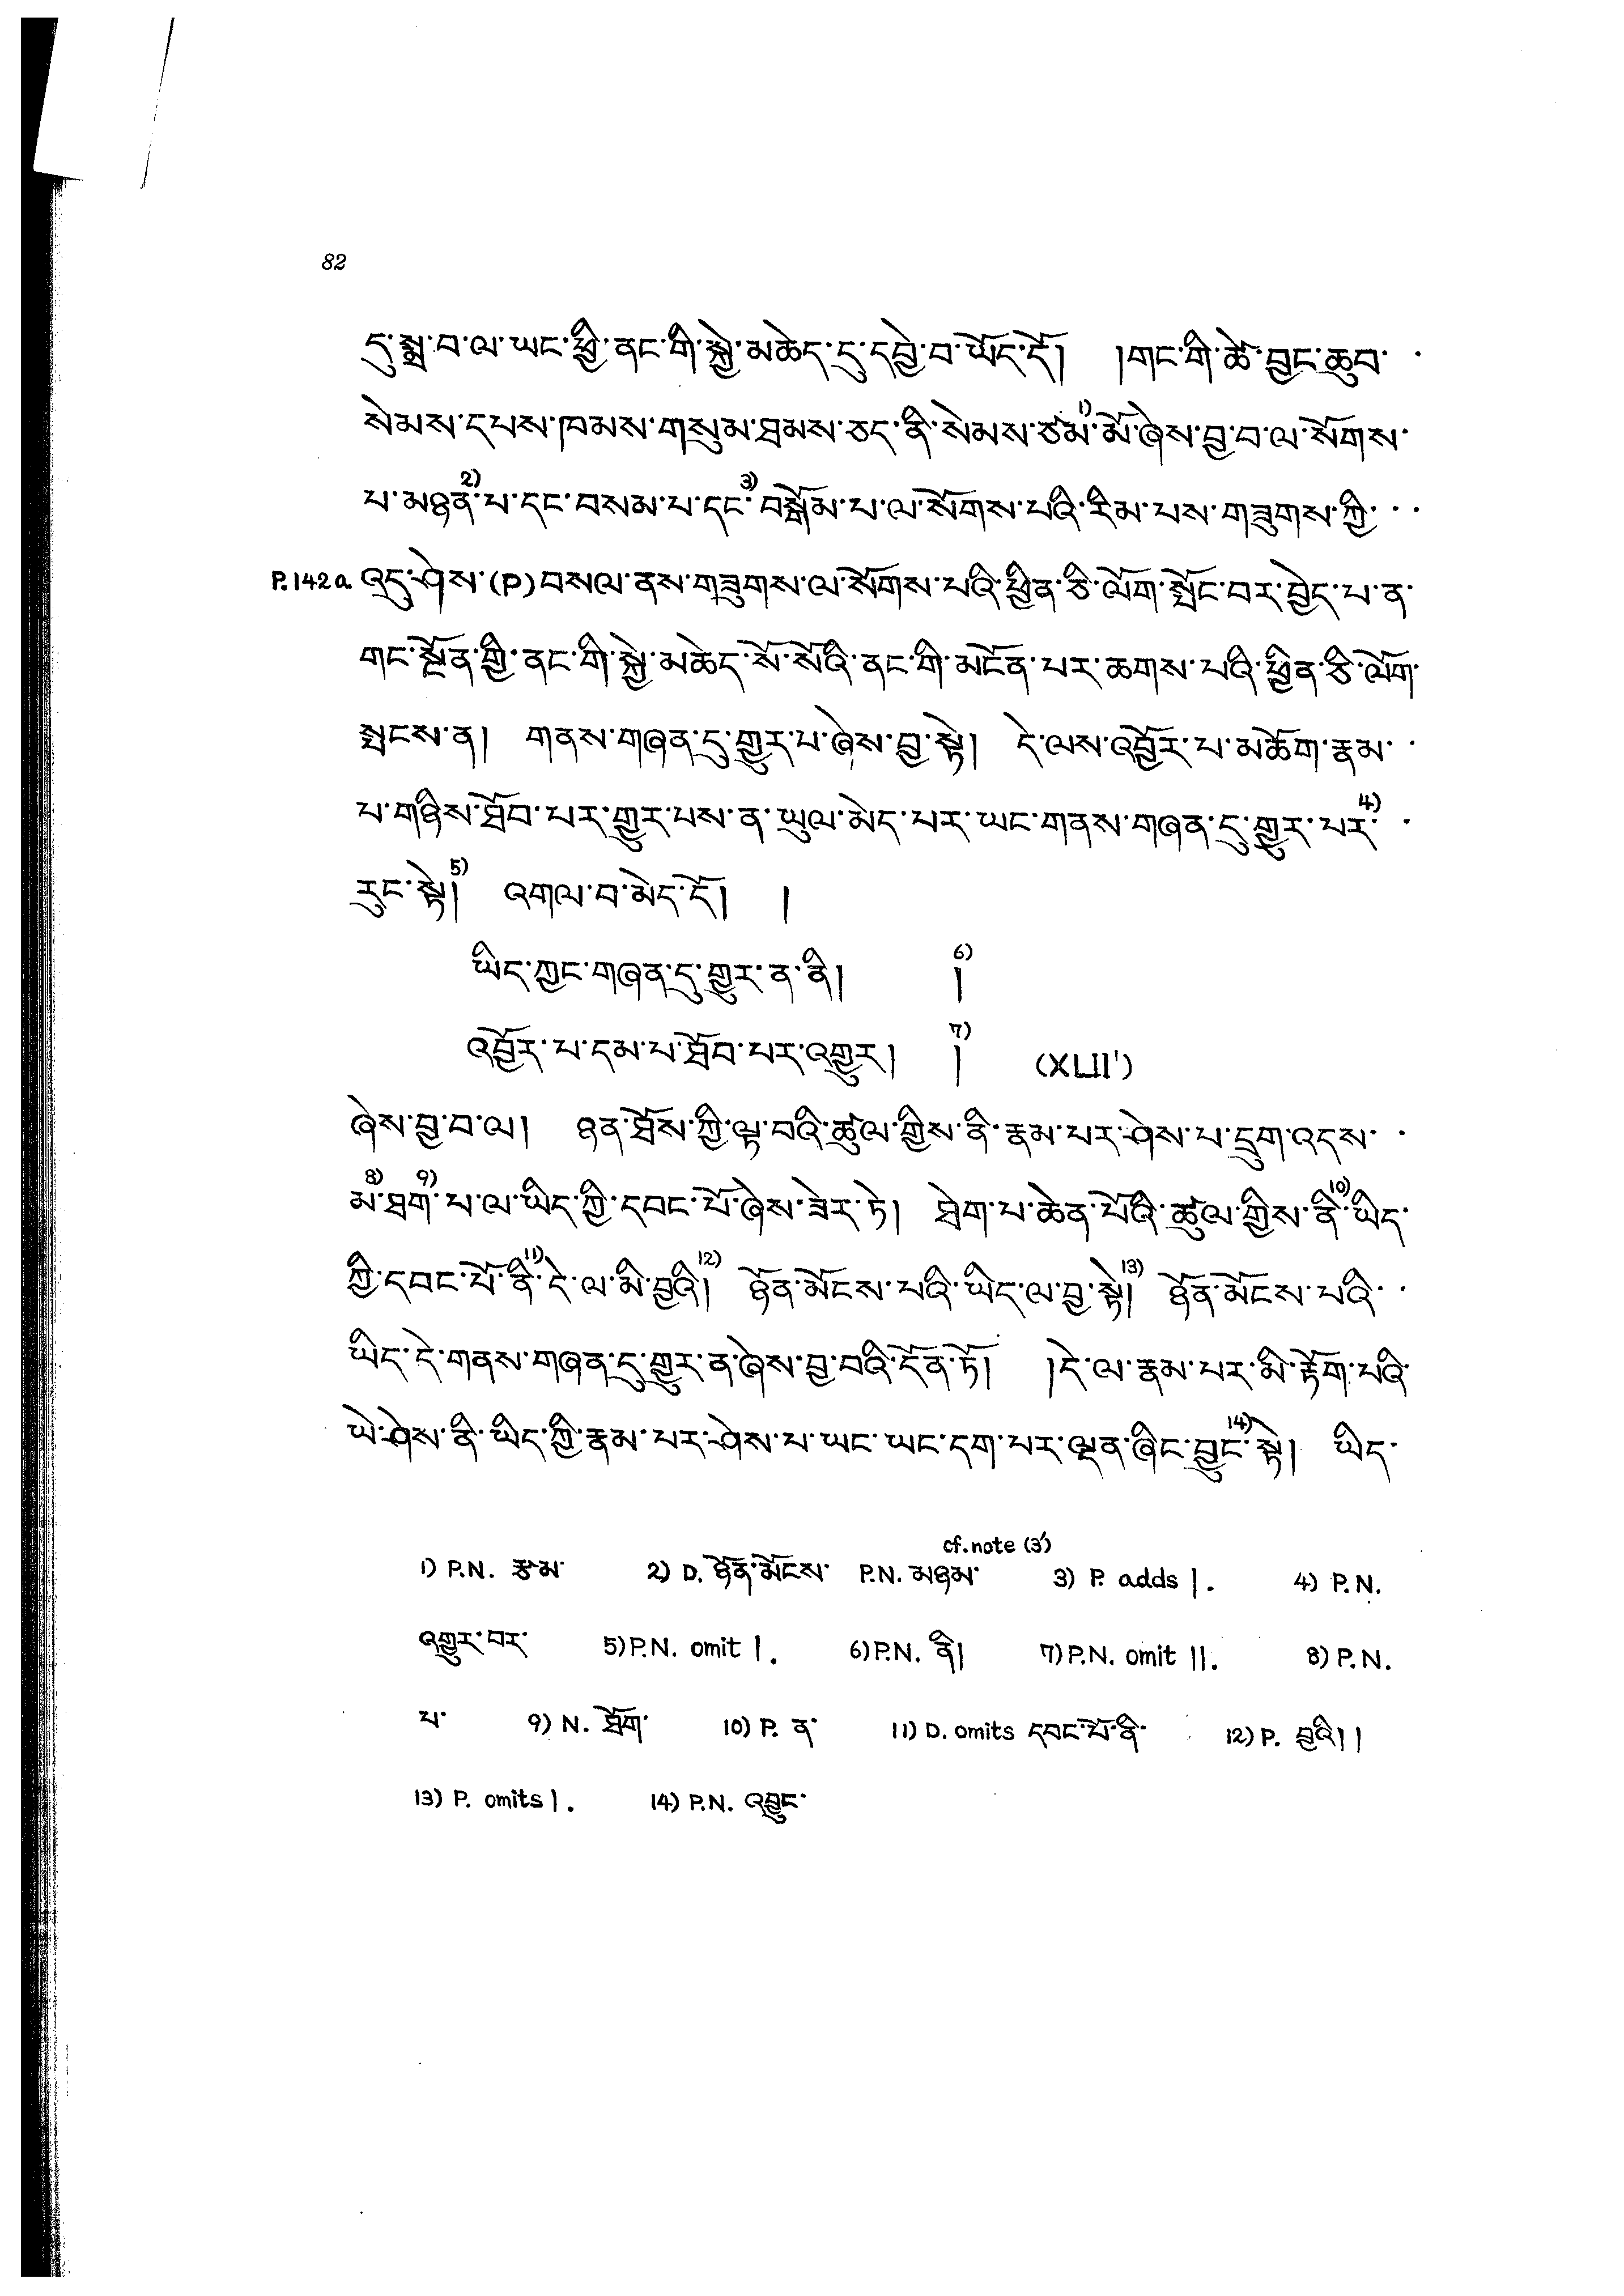 82
དུ་སྨྲ་བ་ལ་ཡང་ཕྱི་ནང་གི་སྐྱེ་མཆེད་དུ་དབྱེ་བ་ཡོད་དོ།  །གང་གི་ཚེ་བྱང་ཆུབ་ ་
སེམས་དཔས་ཁམས་གསུམ་ཐམས་ཅད་ནི་སེམས་ཙམ་1)མོ་ཞེས་བྱ་བ་ལ་སོགས་
པ་མཉན་2)པ་དང་བསམ་པ་དང་3)བསྒོམ་པ་ལ་སོགས་པའི་རིམ་པས་གཟུགས་ཀྱི་ ་ ་
P.142a འདུ་ཤེས་(P)བསལ་ནས་གཟུགས་ལ་སོགས་པའི་ཕྱིན་ཅི་ལོག་སྤོང་བར་བྱེད་པ་ན་
གང་སྔོན་གྱི་ནང་གི་སྐྱེ་མཆེད་སོ་སོའི་ནང་གི་མངོན་པར་ཆགས་པའི་ཕྱིན་ཅི་ལོག་
སྤངས་ན།  གནས་གཞན་དུ་གྱུར་པ་ཞེས་བྱ་སྟེ།  དེ་ལས་འབྱོར་པ་མཆོག་རྣམ་ ་
པ་གཉིས་ཐོབ་པར་གྱུར་པས་ན་ཡུལ་མེད་པར་ཡང་གནས་གཞན་དུ་གྱུར་པར་4) ་
རུང་སྟེ།5)  འགལ་བ་མེད་དོ།  །
ཡིད་ཀྱང་གཞན་དུ་གྱུར་ན་ནི།  །6)
འབྱོར་པ་དམ་པ་ཐོབ་པར་འགྱུར།  །7)  (XLII')
ཞེས་བྱ་བ་ལ།  ཉན་ཐོས་ཀྱི་ལྟ་བའི་ཚུལ་གྱིས་ནི་རྣམ་པར་ཤེས་པ་དྲུག་འདས་ ་
མ་8)ཐག་9)པ་ལ་ཡིད་ཀྱི་དབང་པོ་ཞེས་ཟེར་ཏེ།  ཐེག་པ་ཆེན་པོའི་ཚུལ་གྱིས་ནི་10)ཡིད་
ཀྱི་དབང་པོ་ནི་11)དེ་ལ་མི་བྱའི།12)  ཉོན་མོངས་པའི་ཡིད་ལ་བྱ་སྟེ།13)  ཉོན་མོངས་པའི་ ་
ཡིད་དེ་གནས་གཞན་དུ་གྱུར་ན་ཞེས་བྱ་བའི་དོན་ཏོ།  །དེ་ལ་རྣམ་པར་མི་རྟོག་པའི་
ཡེ་ཤེས་ནི་ཡིད་ཀྱི་རྣམ་པར་ཤེས་པ་ཡང་ཡང་དག་པར་ལྡན་ཞིང་བྱུང་14)སྟེ།  ཡིད་
cf.note (3')
1) P.N. རྩམ་  2) D. ཉོན་མོངས་ P.N. མཉམ་  3) P. adds །.  4) P.N.
འགྱུར་བར་  5) P.N. omit །.  6) P.N. ནི།  7) P.N. omit །།.  8) P.N.
པ་  9) N. ཐོག་  10) P. ན་  11) D. omits དབང་པོ་ནི་  12) P. བྱའི།།
13) P. omits །.  14) P.N. འབྱུང་